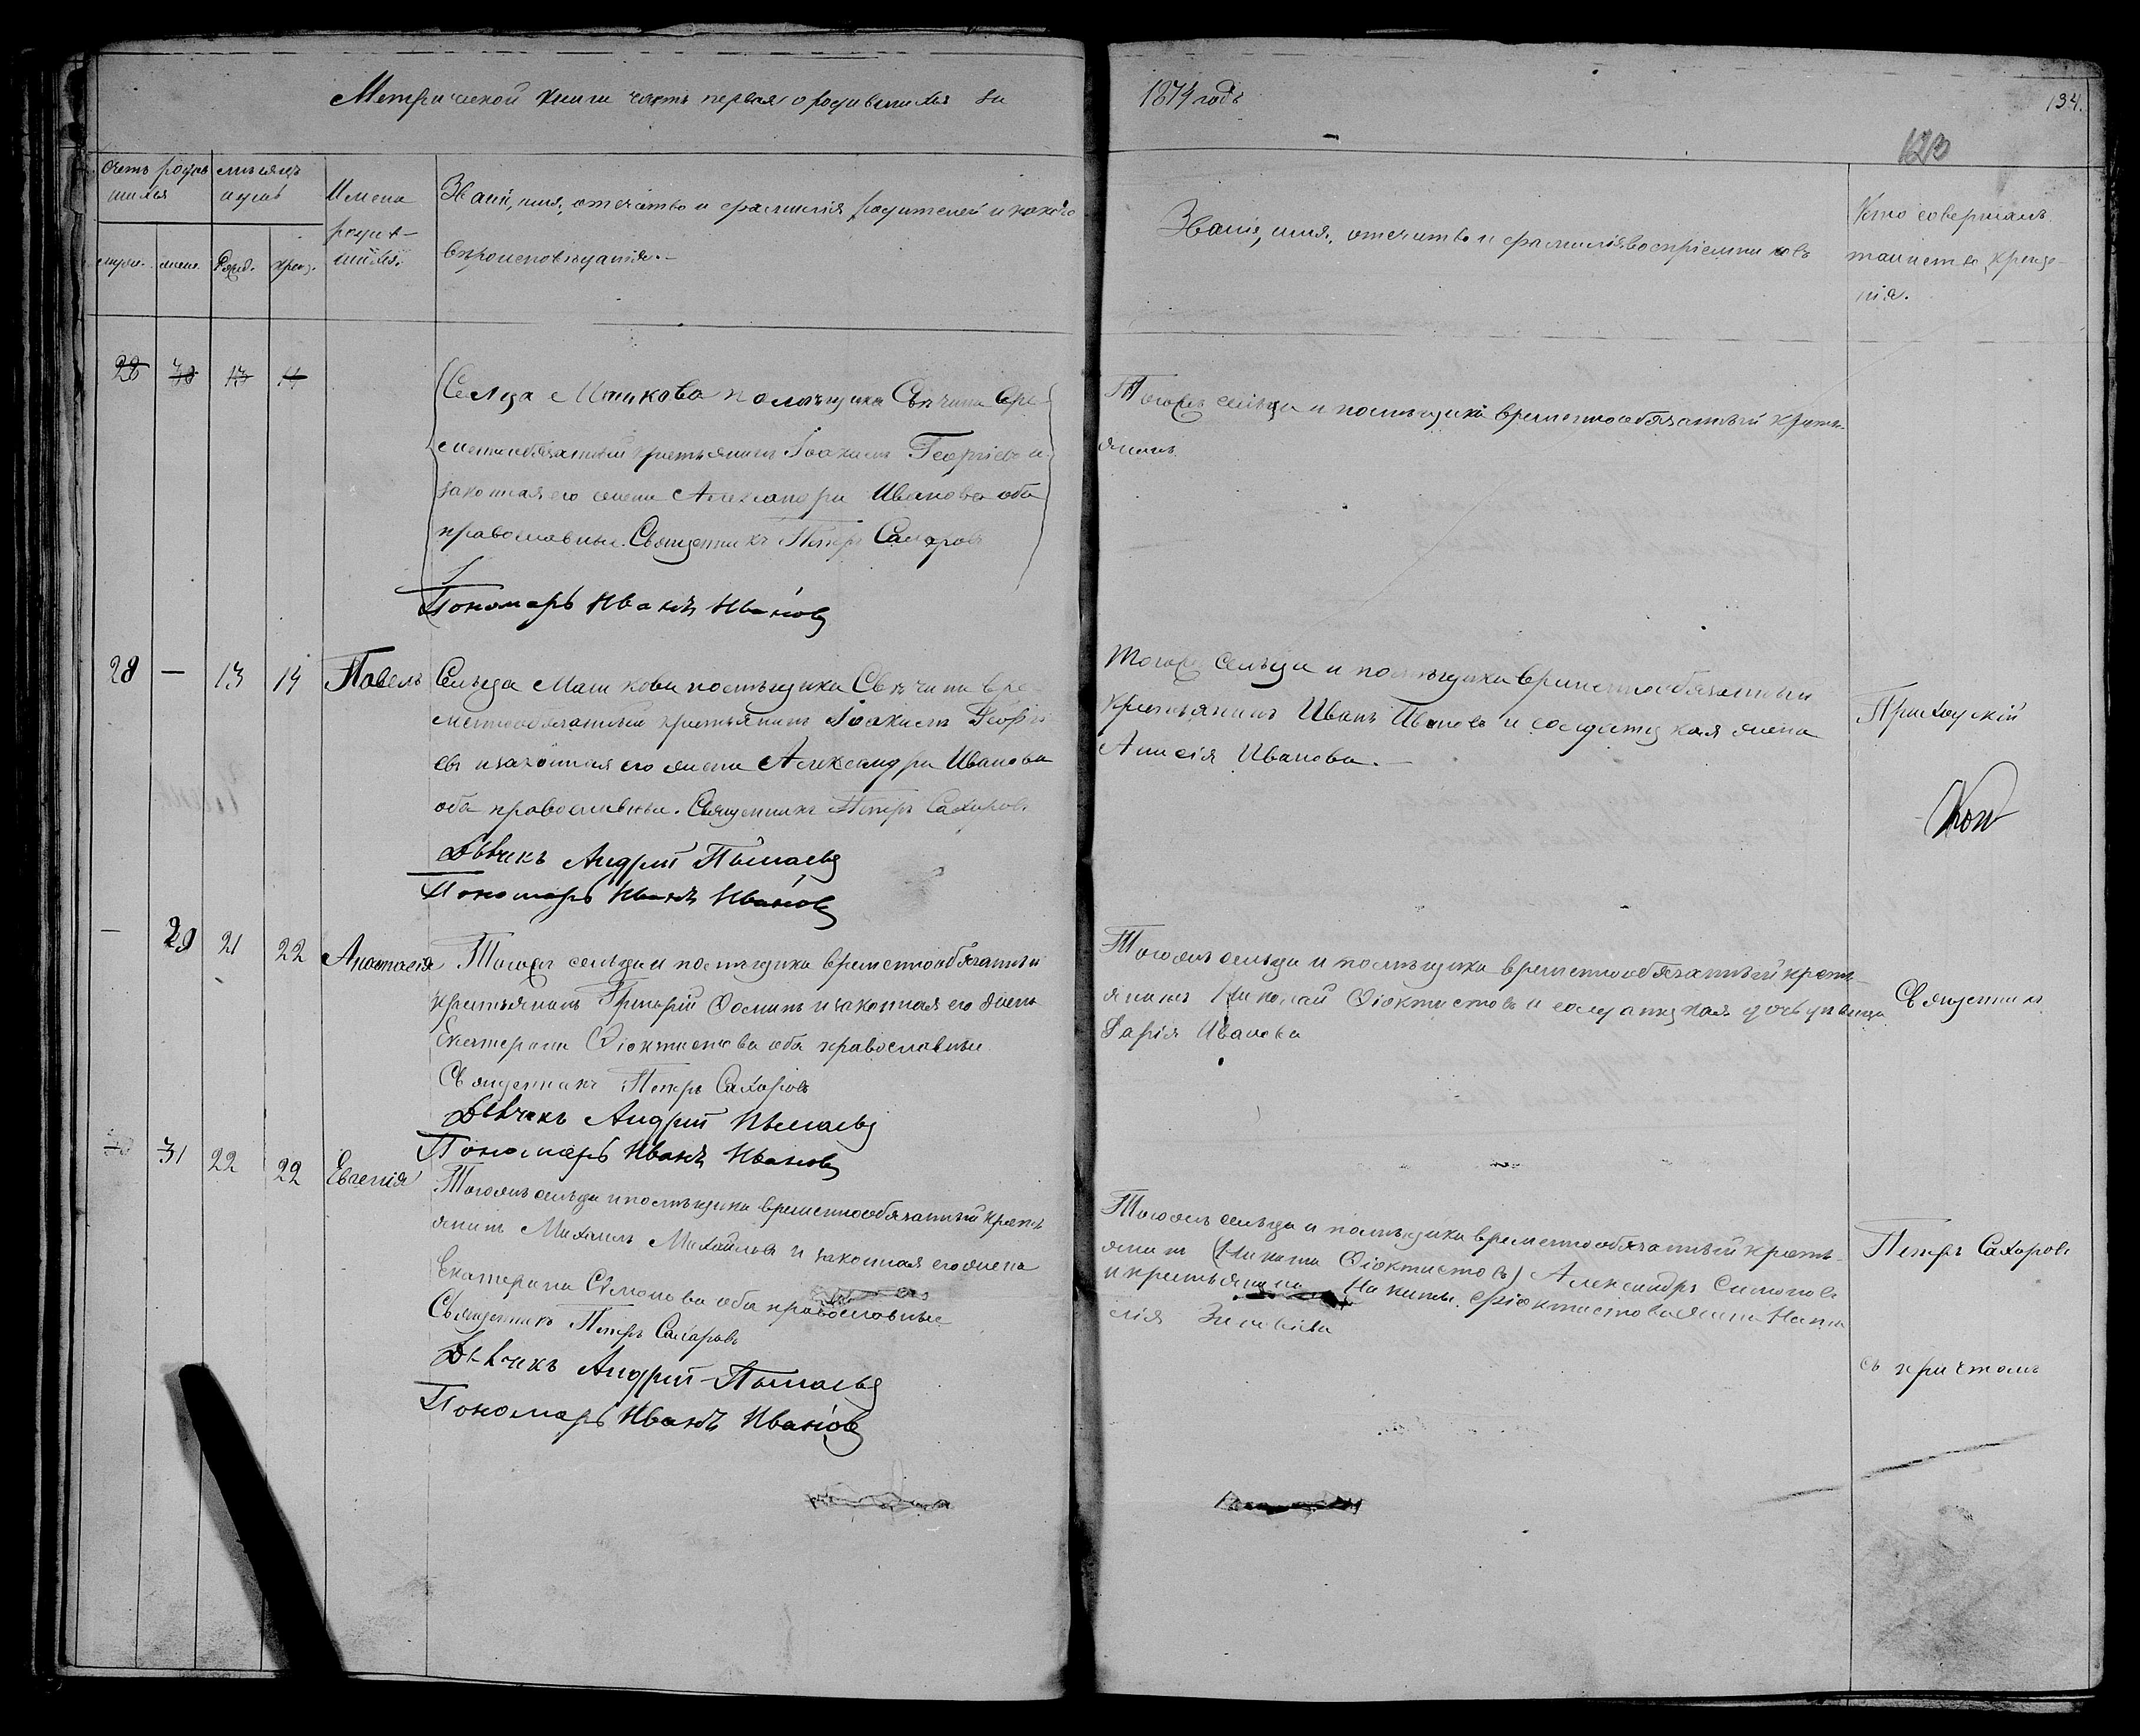 Метрической книги часть первая о родившихся за
1874 годъ
134.
123
Счетъ родив
шихся
мѣсяцъ
и день
Имена
родив-
шихся.
Званіе, имя, отечество и фамилія родителей и какого
вѣроисповѣданія.-
муж. женс. Рожд. крещ.
Званіе, имя, отечество и фамилія воспріемниковъ
Кто совершалъ
таинство креще-
нія.
28 30 13 14
Сельца Машкова помѣщика Свѣчина вре-
меннообязанный крестьянинъ Іоакимъ Георгіевъ и
законная его жена Александра Иванова оба
православные. Священникъ Петръ Сахаровъ
Пономарь Иванъ Ивановъ
Тогожъ сельца и помѣщика временнообязанный кресть-
янинъ
28 — 13 14 Павелъ
Сельца Машкова помѣщика Свѣчина вре
меннообязанный крестьянинъ Іоакимъ Георгі
евъ и законная его жена Александра Иванова
оба православные. Священникъ Петръ Сахаровъ
Дьячекъ Андрей
Пономарь Иванъ Ивановъ
Тогожъ сельца и помѣщика временнообязанный
крестьянинъ Иванъ Ивановъ и солдатская жена
Анисія Иванова.
Приходскій
— 29 21 22 Анастасія
Тогожъ сельца и помѣщика временнообязанный
крестьянинъ Григорій Фоминъ и законная его жена
Екатерина Ѳіоктистова оба православные
Священникъ Петръ Сахаровъ
Дьячекъ Андрей
Пономарь Иванъ Ивановъ
Тогожъ сельца и помѣщика временнообязанный кресть-
янинъ Николай Ѳіоктистовъ и солдатская дочь дѣвица
Дарія Иванова
Священникъ
31 22 22 Евгенія
Тогожъ сельца и помѣщика временнообязанный кресть
янинъ Михаилъ Михайловъ и законная его жена
Екатерина Симонова оба православные
Священникъ Петръ Сахаровъ
Дьячекъ Андрей
Пономарь Иванъ Ивановъ
Тогожъ сельца и помѣщика временнообязанный кресть-
янинъ (Никита Ѳіоктистовъ) Александръ Симоновъ
и крестьянина Никиты Ѳіоктистова жена
Петръ Сахаровъ
съ причтомъ